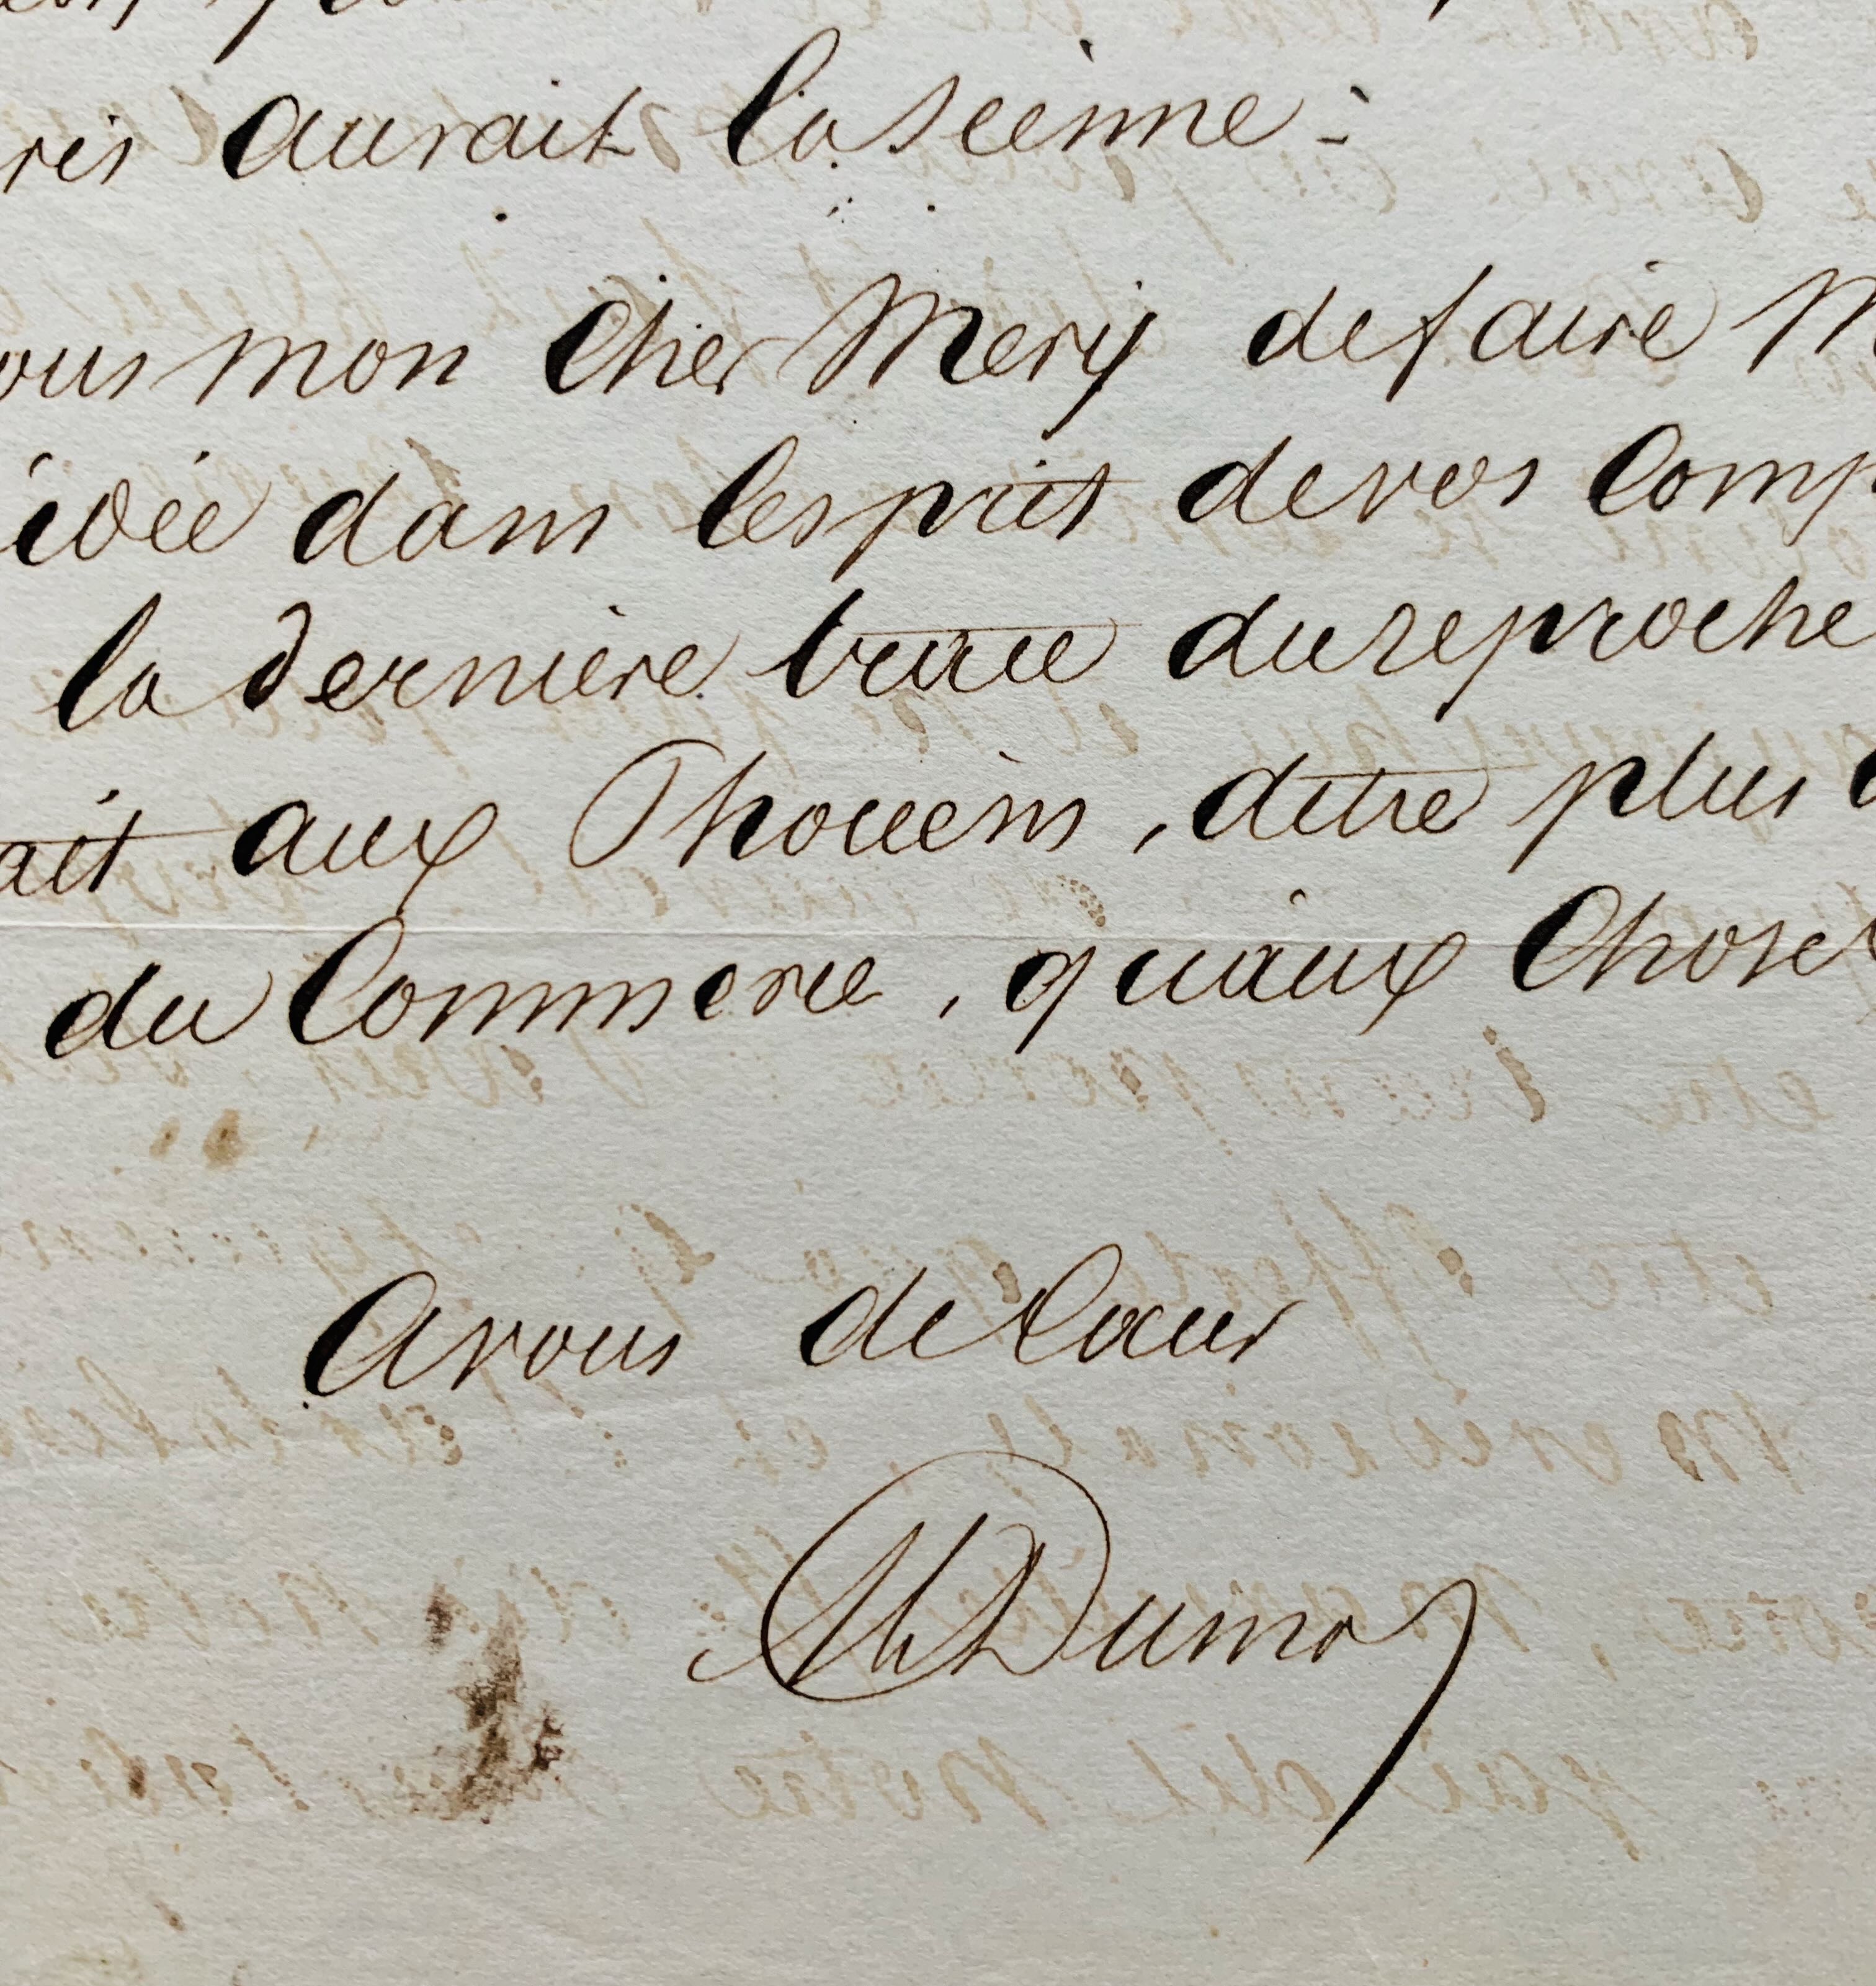 ris aurait la sienne -
ous mon cher Mery de faire
idée dans lesprit de vos comp
la dernière trace du reproche
ait aux Phocéens, dêtre plus
du Commerce, quaux choses
A vous de Cœur
Al Dumas